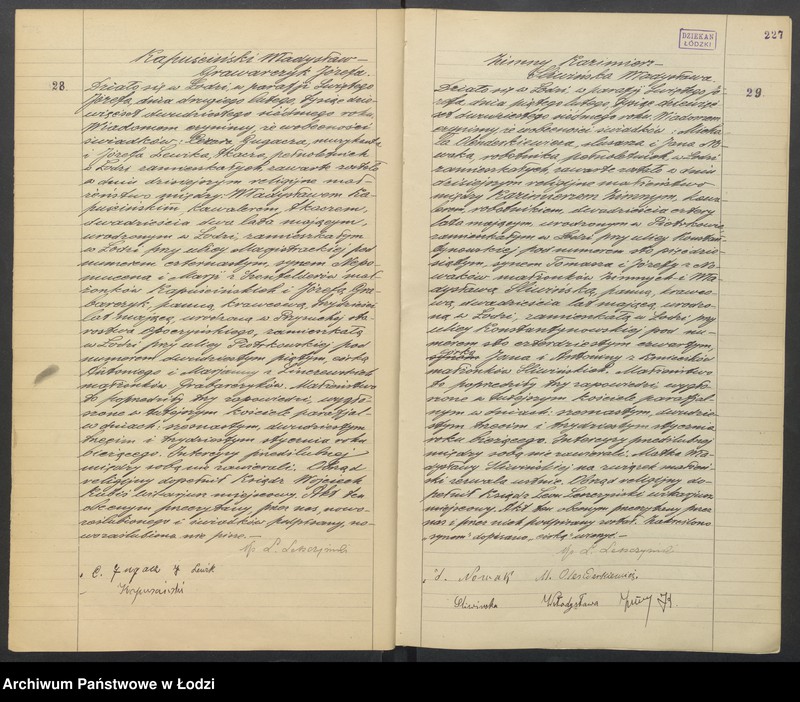 28
Kapuściński Władysław –
Grabarczyk Józefa.
Działo się w Łodzi, w parafji Świętego
Józefa, dnia drugiego lutego, tysiąc dzie-
więćset dwudziestego ósmego roku.
Wiadomem czynimy, że w obecności
świadków: Gugacza, murarza
i Józefa Lewika, tkacza, pełnoletnich
w Łodzi zamieszkałych, zawarte zostało
w dniu dzisiejszym religijne mał-
żeństwo między: Władysławem Ka-
puścińskim, kawalerem, tkaczem,
dwadzieścia dwa lata mającym,
urodzonym w Łodzi, zamieszkałym
w Łodzi przy ulicy Magistrackiej pod
numerem czternastym, synem Nepo-
mucena i Marji z mał-
żonków Kapuścińskich i Józefą Gra-
barczyk, panną, krawcową, trzydzieści
lat mającą, urodzoną w sta-
rostwa Opoczyńskiego, zamieszkałą
w Łodzi, przy ulicy Piotrkowskiej pod
numerem dwudziestym piątym, córką
Antoniego i Marjanny z
małżonków Grabarczyków. Małżeństwo
to poprzedziły trzy zapowiedzi, wygło-
szone w tutejszym kościele parafjal.
w dniach: szesnastym, dwudziestym
trzecim i trzydziestym stycznia roku
bieżącego. Intercyzy przedślubnej
między sobą nie zawierali. Obrząd
religijny dopełnił Ksiądz Wojciech
wikarjusz miejscowy. Akt ten
obecnym przeczytany, przez nas, nowo-
zaślubionego i świadków podpisany, no-
wozaślubiona nie pisze. –
Kapuściński
DZIEKAN
ŁÓDZKI
227
29.
Zimny Kazimierz –
Śliwińska Władysława.
Działo się w Łodzi w parafji Świętego Jó-
zefa, dnia piątego lutego, tysiąc dziewięć-
set dwudziestego ósmego roku. Wiadomem
czynimy, że w obecności świadków: Micha-
ła ślusarza i Jana No-
waka, robotnika, pełnoletnich, w Łodzi
zamieszkałych, zawarte zostało w dniu
dzisiejszym religijne małżeństwo
między: Kazimierzem Zimnym, kawa-
lerem, robotnikiem, dwadzieścia cztery
lata mającym, urodzonym w Piotrkowie,
zamieszkałym w Łodzi przy ulicy Konstan-
tynowskiej pod numerem sto pięćdzie-
siątym, synem Tomasza i Józefy z No-
waków małżonków Zimnych i Wła-
dysławą Śliwińską, panną, krawco-
wą, dwadzieścia lat mającą, urodzo-
ną w Łodzi, zamieszkałą w Łodzi, przy
ulicy Konstantynowskiej pod nu-
merem sto czterdziestym czwartym,
córką
synem Jana i Antoniny z
małżonków Śliwińskich. Małżeństwo
to poprzedziły trzy zapowiedzi, wygło-
szone w tutejszym kościele parafjal-
nym w dniach: szesnastym, dwudzie-
stym trzecim i trzydziestym stycznia
roku bieżącego. Intercyzy przedślubnej
między sobą nie zawierali. Matka Wła-
dysławy Śliwińskiej na związek małżeń-
ski zezwala ustnie. Obrząd religijny do-
pełnił Ksiądz Leon wikarjusz
miejscowy. Akt ten obecnym przeczytany przez
nas i przez nich podpisany został. Zakreślono
„synem” dopisano „córką” wierzę. –
J. Nowak
Śliwińska Władysława
Archiwum Państwowe w Łodzi